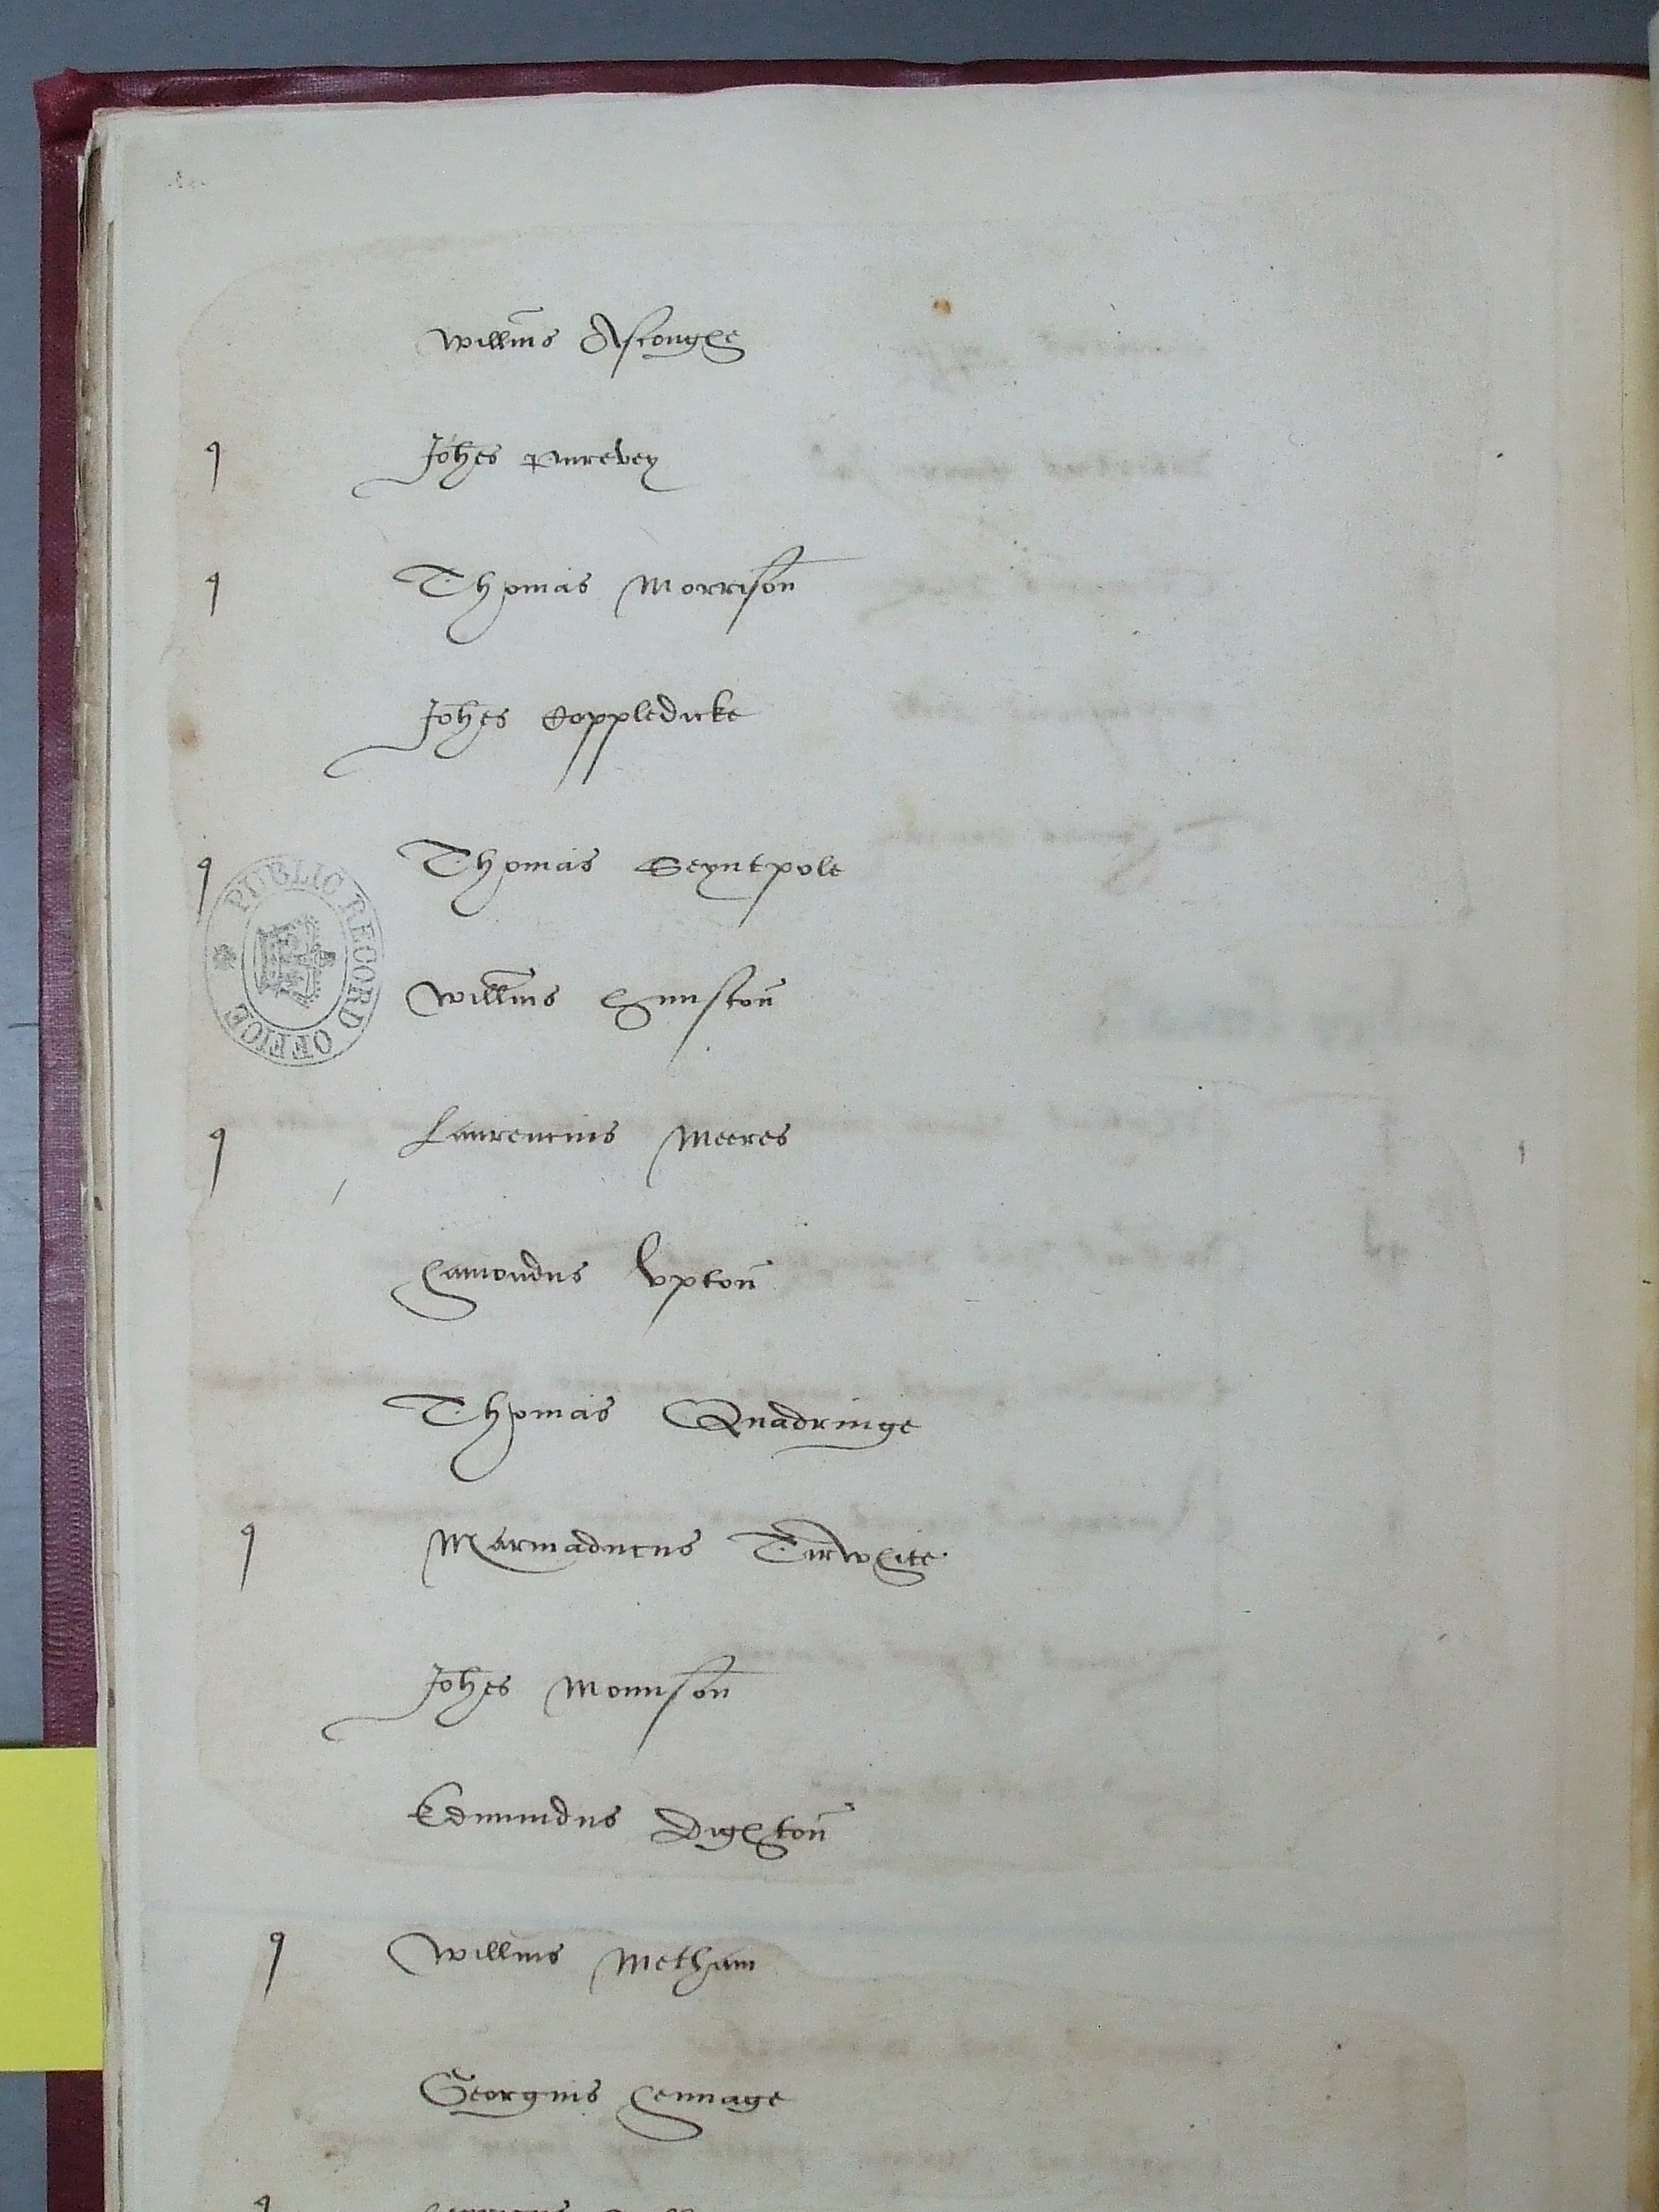 Willms Ascoughe
q Johes Purevey
q Thomas Morrison
Johes Coppledicke
q Thomas Seyntpole
PUBLIC RECORD OFFICE
Willms Hunston
q Laurencius Meeres
Hamondus Upton
Thomas Quadringe
q Marmaducus Tirwhite
Johes Mounson
Edmundus Dighton
q Willms Metham
Georgius Hennage